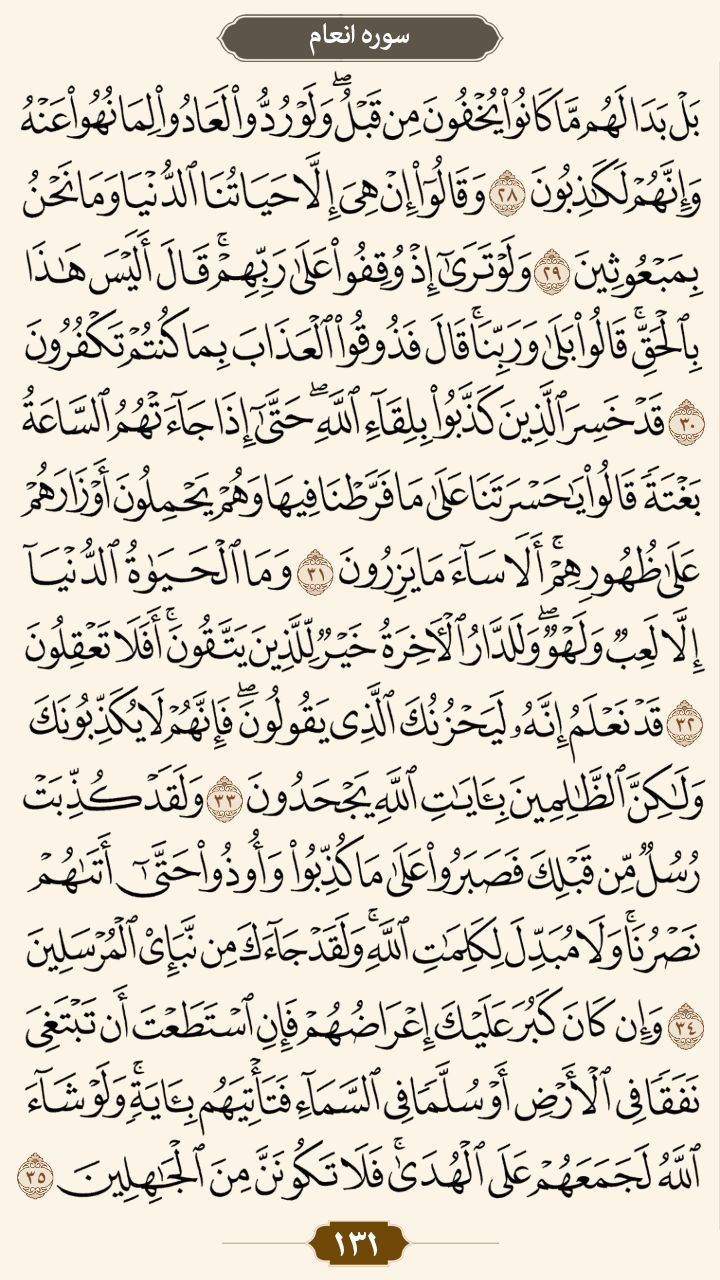 سوره انعام
بَلْ بَدَا لَهُم مَّا كَانُوا۟ يُخْفُونَ مِن قَبْلُ ۖ وَلَوْ رُدُّوا۟ لَعَادُوا۟ لِمَا نُهُوا۟ عَنْهُ
وَإِنَّهُمْ لَكَـٰذِبُونَ ٢٨ وَقَالُوٓا۟ إِنْ هِىَ إِلَّا حَيَاتُنَا ٱلدُّنْيَا وَمَا نَحْنُ
بِمَبْعُوثِينَ ٢٩ وَلَوْ تَرَىٰٓ إِذْ وُقِفُوا۟ عَلَىٰ رَبِّهِمْ ۚ قَالَ أَلَيْسَ هَـٰذَا
بِٱلْحَقِّ ۚ قَالُوا۟ بَلَىٰ وَرَبِّنَا ۚ قَالَ فَذُوقُوا۟ ٱلْعَذَابَ بِمَا كُنتُمْ تَكْفُرُونَ
٣٠ قَدْ خَسِرَ ٱلَّذِينَ كَذَّبُوا۟ بِلِقَآءِ ٱللَّهِ ۖ حَتَّىٰٓ إِذَا جَآءَتْهُمُ ٱلسَّاعَةُ
بَغْتَةً قَالُوا۟ يَـٰحَسْرَتَنَا عَلَىٰ مَا فَرَّطْنَا فِيهَا وَهُمْ يَحْمِلُونَ أَوْزَارَهُمْ
عَلَىٰ ظُهُورِهِمْ ۚ أَلَا سَآءَ مَا يَزِرُونَ ٣١ وَمَا ٱلْحَيَوٰةُ ٱلدُّنْيَآ
إِلَّا لَعِبٌ وَلَهْوٌ ۖ وَلَلدَّارُ ٱلْـَٔاخِرَةُ خَيْرٌ لِّلَّذِينَ يَتَّقُونَ ۗ أَفَلَا تَعْقِلُونَ
٣٢ قَدْ نَعْلَمُ إِنَّهُۥ لَيَحْزُنُكَ ٱلَّذِى يَقُولُونَ ۖ فَإِنَّهُمْ لَا يُكَذِّبُونَكَ
وَلَـٰكِنَّ ٱلظَّـٰلِمِينَ بِـَٔايَـٰتِ ٱللَّهِ يَجْحَدُونَ ٣٣ وَلَقَدْ كُذِّبَتْ
رُسُلٌ مِّن قَبْلِكَ فَصَبَرُوا۟ عَلَىٰ مَا كُذِّبُوا۟ وَأُوذُوا۟ حَتَّىٰٓ أَتَىٰهُمْ
نَصْرُنَا ۚ وَلَا مُبَدِّلَ لِكَلِمَـٰتِ ٱللَّهِ ۚ وَلَقَدْ جَآءَكَ مِن نَّبَإِى۟ ٱلْمُرْسَلِينَ
٣٤ وَإِن كَانَ كَبُرَ عَلَيْكَ إِعْرَاضُهُمْ فَإِنِ ٱسْتَطَعْتَ أَن تَبْتَغِىَ
نَفَقًا فِى ٱلْأَرْضِ أَوْ سُلَّمًا فِى ٱلسَّمَآءِ فَتَأْتِيَهُم بِـَٔايَةٍ ۚ وَلَوْ شَآءَ
ٱللَّهُ لَجَمَعَهُمْ عَلَى ٱلْهُدَىٰ ۚ فَلَا تَكُونَنَّ مِنَ ٱلْجَـٰهِلِينَ ٣٥
١٣١